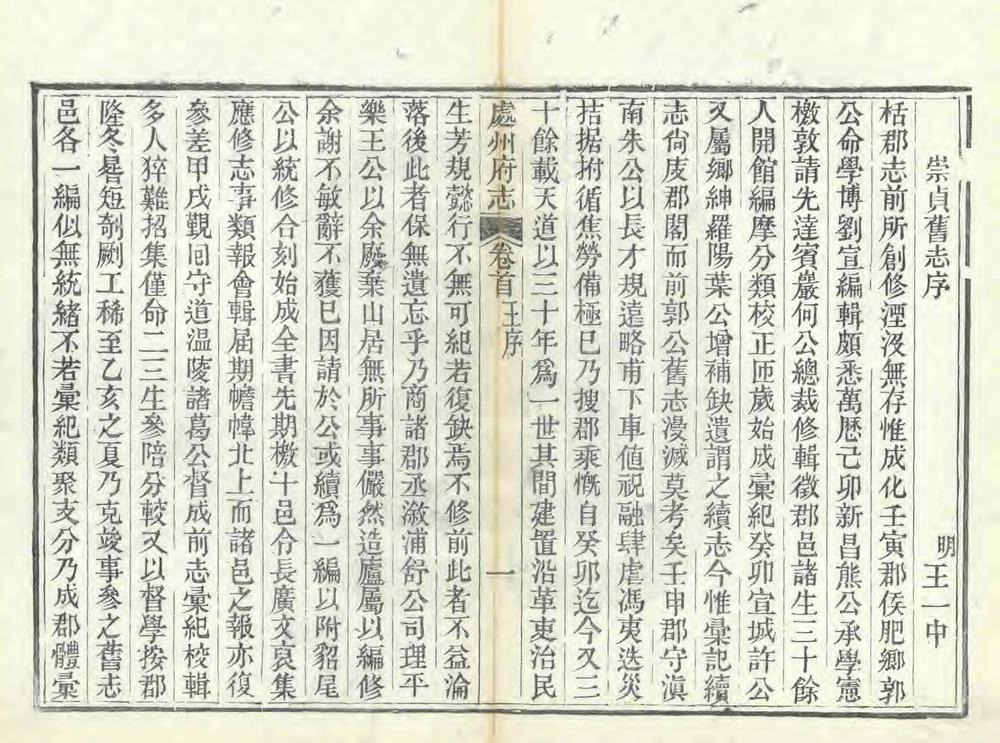 崇貞舊志序
明王一中
栝郡志前所創修湮沒無存惟成化壬寅郡侯肥鄉郭
公命學博劉宣編輯頗悉萬歷己卯新昌熊公承學憲
檄敦請先達賓巖何公總裁修輯徵郡邑諸生三十餘
人開館編摩分類校正匝歲始成彙紀癸卯宣城許公
又屬鄉紳羅陽葉公增補缺遺謂之續志今惟彙記續
志尙庋郡閣而前郭公舊志漫滅莫考矣壬申郡守滇
南朱公以長才規遠略甫下車値祝融肆虐馮夷迭災
拮据拊循焦勞備極巳乃搜郡乘慨自癸卯迄今又三
十餘載天道以三十年爲一世其間建置沿革吏治民
處州府志
卷首
王序
一
生芳規懿行不無可紀若復缺焉不修前此者不益淪
落後此者保無遺忘乎乃商諸郡丞漵浦舒公司理平
樂王公以余廢棄山居無所事事儼然造廬屬以編修
余謝不敏辭不獲已因請於公或續爲一編以附貂尾
公以統修合刻始成全書先期檄十邑令長廣文裒集
應修志事類報會輯屆期幨幃北上而諸邑之報亦復
參差甲戌覲回守道溫陵諸葛公督成前志彙紀校輯
多人猝難招集僅命二三生參陪分較又以督學按郡
隆冬晷短剞劂工稀至乙亥之夏乃克竣事參之舊志
邑各一編似無統緒不若彙紀類聚支分乃成郡體彙